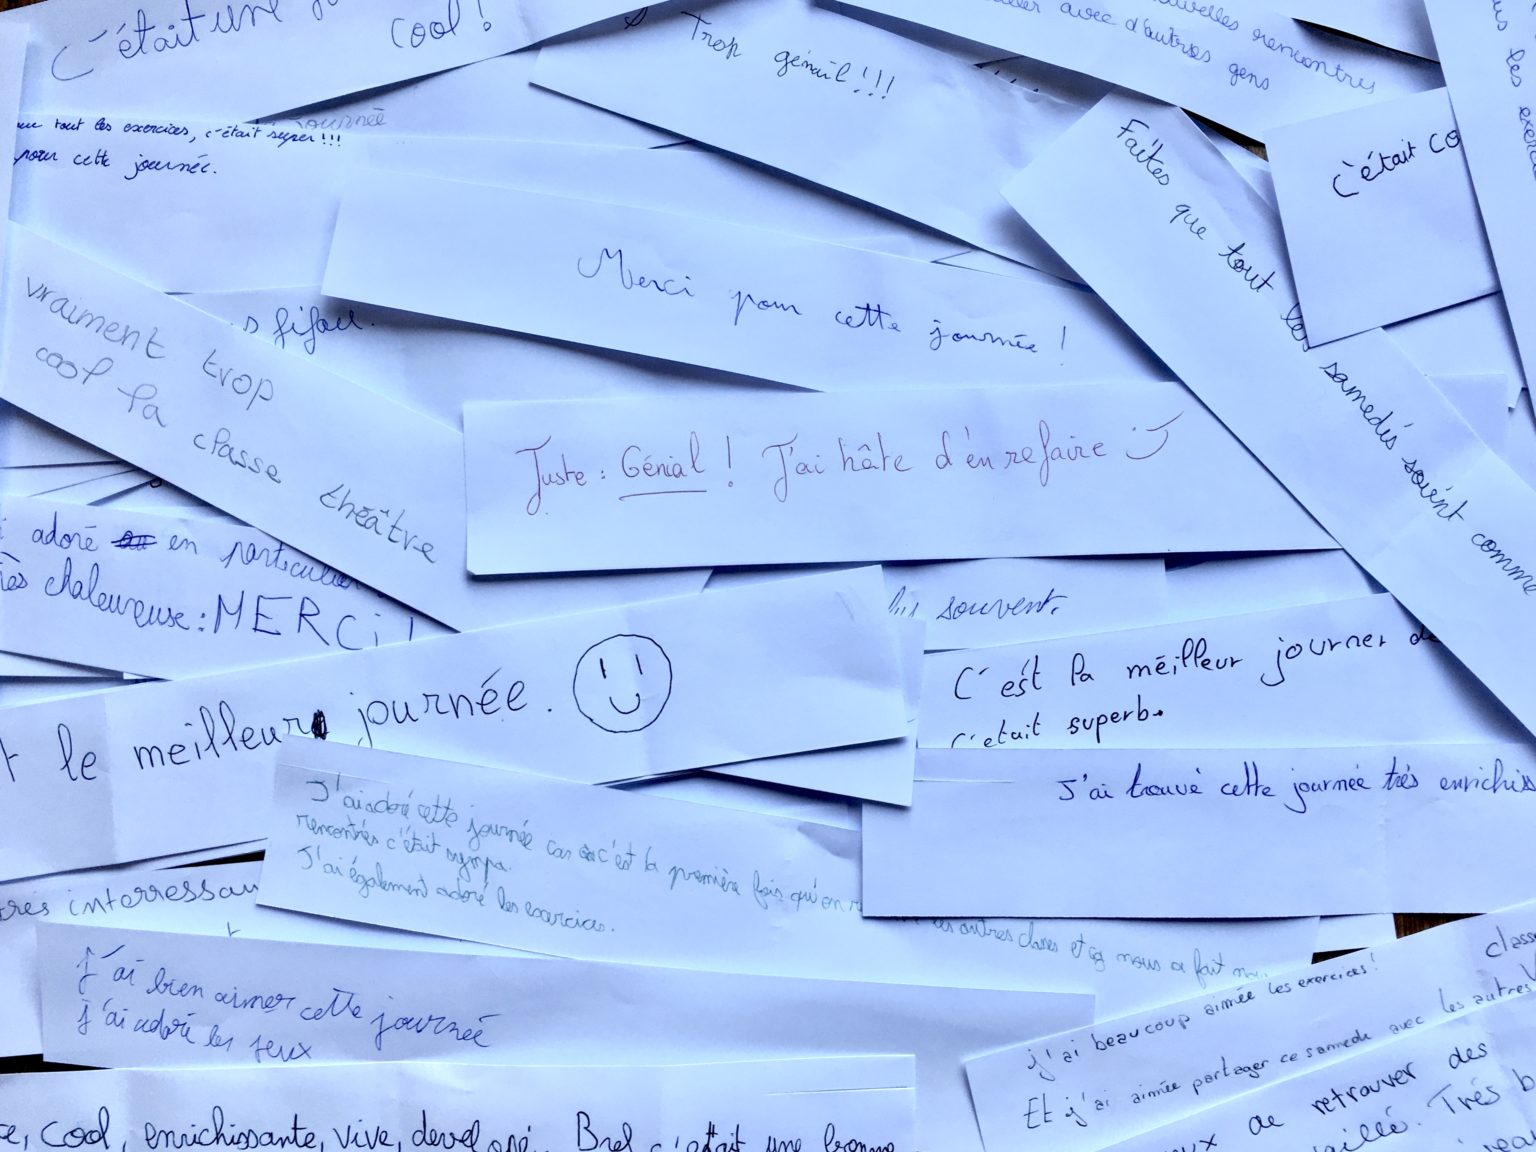 C'était une
cool !
Trop génail !!!
nouvelles rencontres
avec d'autres gens
tout les exercices, c'était super !!!
pour cette journée.
journée
C'était co
Faites que tout les samedis soient comme
Merci pour cette journée !
s fifou.
vraiment trop
cool la classe théâtre
Juste : Génial ! J'ai hâte d'en refaire :)
adoré en particulier
chaleureuse : MERCi !
souvent.
C'est la meilleur journer de
c'etait superb.
le meilleur journée.
J'ai trouvé cette journée très enrichiss
J'ai adoré cette journée car c'est la première fois qu'on r
rencontrés c'était sympa.
J'ai également adoré les exercices.
les autres classes et ça nous a fait
très interressan
j'ai bien aimer cette journée
j'ai adoré les jeux
class
j'ai beaucoup aimée les exercices !
Et j'ai aimée partager ce samedi avec les autres
de retrouver des
Très b
cool, enrichissante, vive, Bref c'était une bonne